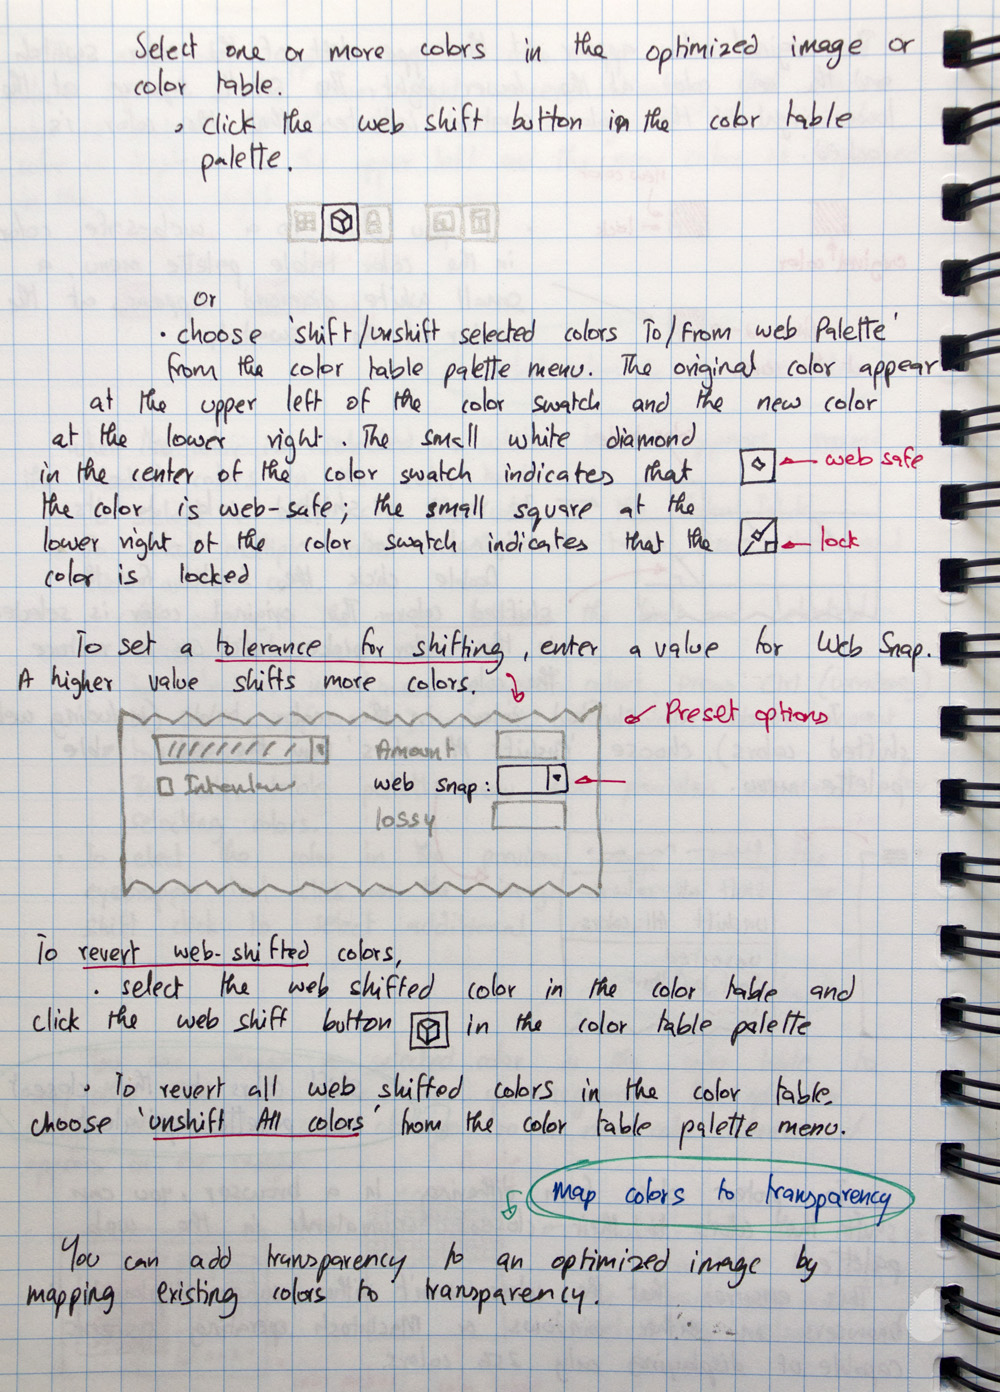 Select one or more colors in the optimized image or
color table.
• click the web shift button in the color table
palette.
or
• choose 'shift/unshift selected colors To/From web Palette'
from the color table palette menu. The original color appear
at the upper left of the color swatch and the new color
at the lower right. The small white diamond
in the center of the color swatch indicates that
web safe
the color is web-safe; the small square at the
lower right of the color swatch indicates that the
lock
color is locked
To set a tolerance for shifting, enter a value for Web Snap.
A higher value shifts more colors.
Preset options
Amount
web snap:
lossy
To revert web-shifted colors,
. select the web shifted color in the color table and
click the web shift button in the color table palette
• To revert all web shifted colors in the color table,
choose 'unshift All colors' from the color table palette menu.
map colors to transparency
You can add transparency to an optimized image by
mapping existing colors to transparency.